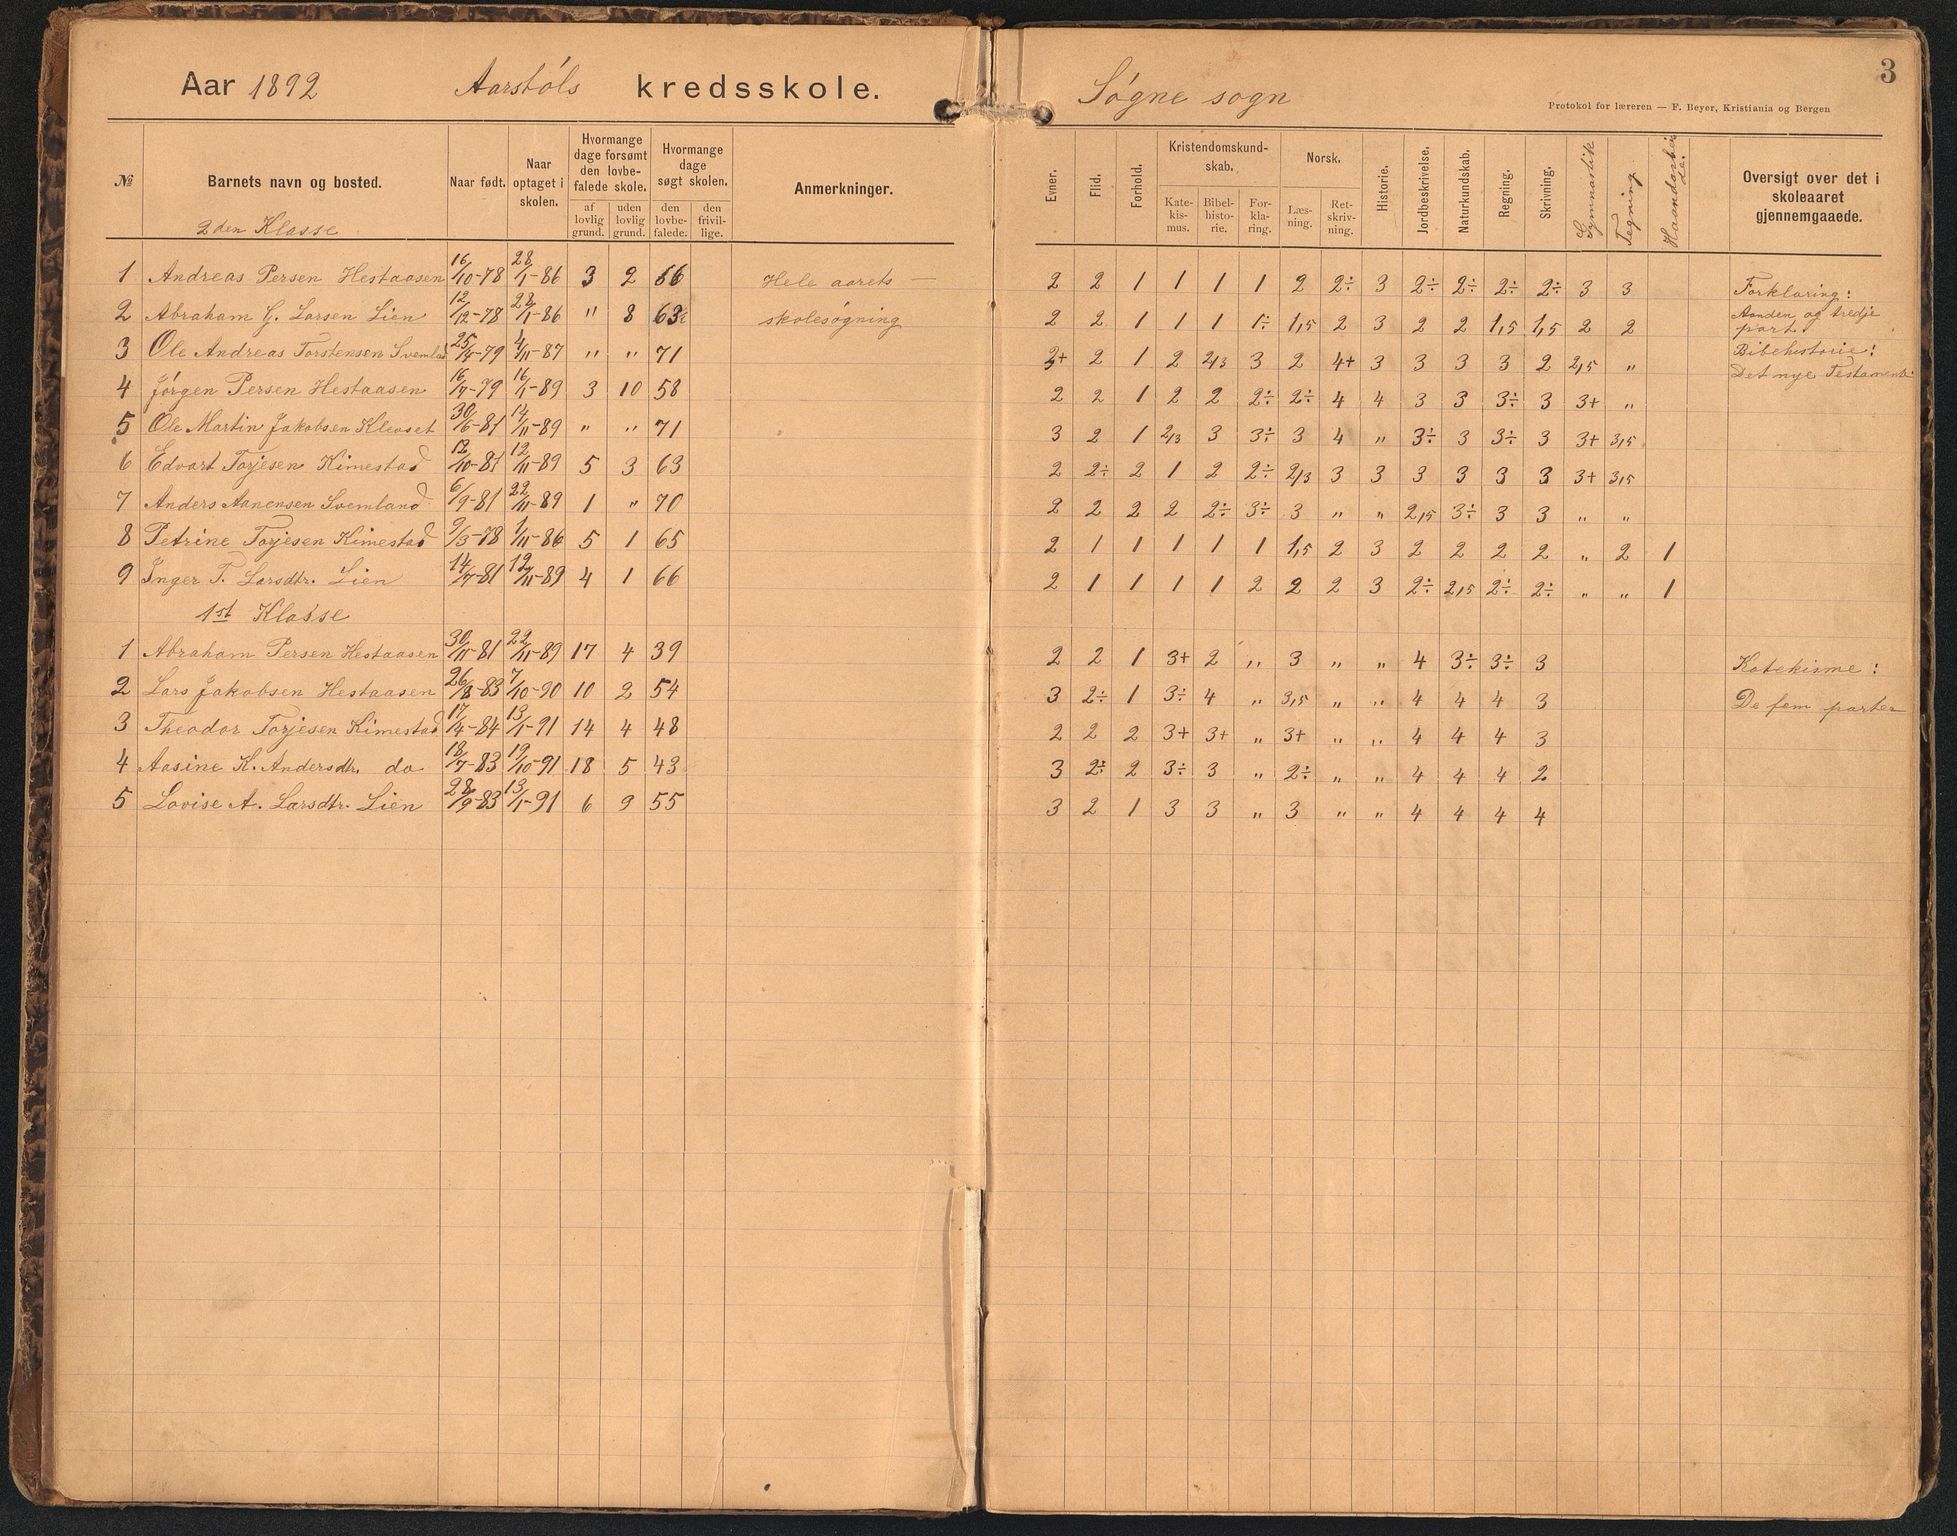 Aar 1892 Aarstøls kredsskole. Søgne sogn 3
Protokol for læreren — F. Beyer, Kristiania og Bergen
№ Barnets navn og bosted. Naar født. Naar optaget i skolen. Hvormange dage forsømt den lovbefalede skole. af lovlig grund. uden lovlig grund. Hvormange dage søgt skolen. den lovbefalede. den frivillige. Anmerkninger. Evner. Flid. Forhold. Kristendomskundskab. Katekismus. Bibelhistorie. Forklaring. Norsk. Læsning. Retskrivning. Historie. Jordbeskrivelse. Naturkundskab. Regning. Skrivning. Gymnastik Tegning. Haandarbeide. Oversigt over det i skoleaaret gjennemgaaede.
2den Klasse
1 Andreas Persen Hestaasen 16/10-78 28/1-86 3 2 66 Hele aarets 2 2 1 1 1 1 2 2÷ 3 2÷ 2÷ 2÷ 2÷ 3 3 Forklaring:
2 Abraham G. Larsen Lien 12/12-78 28/1-86 " 8 63 skolesøgning 2 2 1 1 1 1÷ 1,5 2 3 2 2 1,5 1,5 2 2 Anden og tredje part.
3 Ole Andreas Torstensen Svemland 25/4-79 4/11-87 " " 71 2+ 2 1 2 2/3 3 2 4+ 3 3 3 3 2 2,5 " Bibelhistorie: Det nye Testamente
4 Jørgen Persen Hestaasen 16/7-79 16/1-89 3 10 58 2 2 1 2 2 2÷ 2÷ 4 4 3 3 3÷ 3 3+ "
5 Ole Martin Jakobsen Kleoset 30/6-81 14/11-89 " " 71 3 2 1 2/3 3 3÷ 3 4 " 3÷ 3 3÷ 3 3+ 3,5
6 Edvart Torjesen Kimestad 12/10-81 12/11-89 5 3 63 2 2÷ 2 1 2 2÷ 2/3 3 3 3 3 3 3 3+ 3,5
7 Anders Aanensen Svemland 6/9-81 22/11-89 1 " 70 2 2 2 2 2÷ 3÷ 3 " " 2,5 3÷ 3 3 " "
8 Petrine Torjesen Kimestad 9/3-78 1/11-86 5 1 65 2 1 1 1 1 1 1,5 2 3 2 2 2 2 " 2 1
9 Inger T. Larsdtr. Lien 14/7-81 12/11-89 4 1 66 2 1 1 1 1 2 2 2 3 2÷ 2,5 2÷ 2÷ " " 1
1st Klasse
1 Abraham Persen Hestaasen 30/11-81 22/11-89 17 4 39 2 2 1 3+ 2 " 3 " " 4 3÷ 3÷ 3 Katekisme:
2 Lars Jakobsen Hestaasen 26/8-83 7/10-90 10 2 54 3 2÷ 1 3÷ 4 " 3,5 " " 4 4 4 3 De fem parter
3 Theodor Torjesen Kimestad 17/4-84 13/1-91 14 4 48 2 2 2 3+ 3+ " 3+ " " 4 4 4 3
4 Aasine K. Andersdtr. do 18/7-83 19/10-91 18 5 43 3 2÷ 2 3÷ 3 " 2÷ " " 4 4 4 2
5 Lovise A. Larsdtr. Lien 28/9-83 13/1-91 6 9 55 3 2 1 3 3 " 3 " " 4 4 4 4